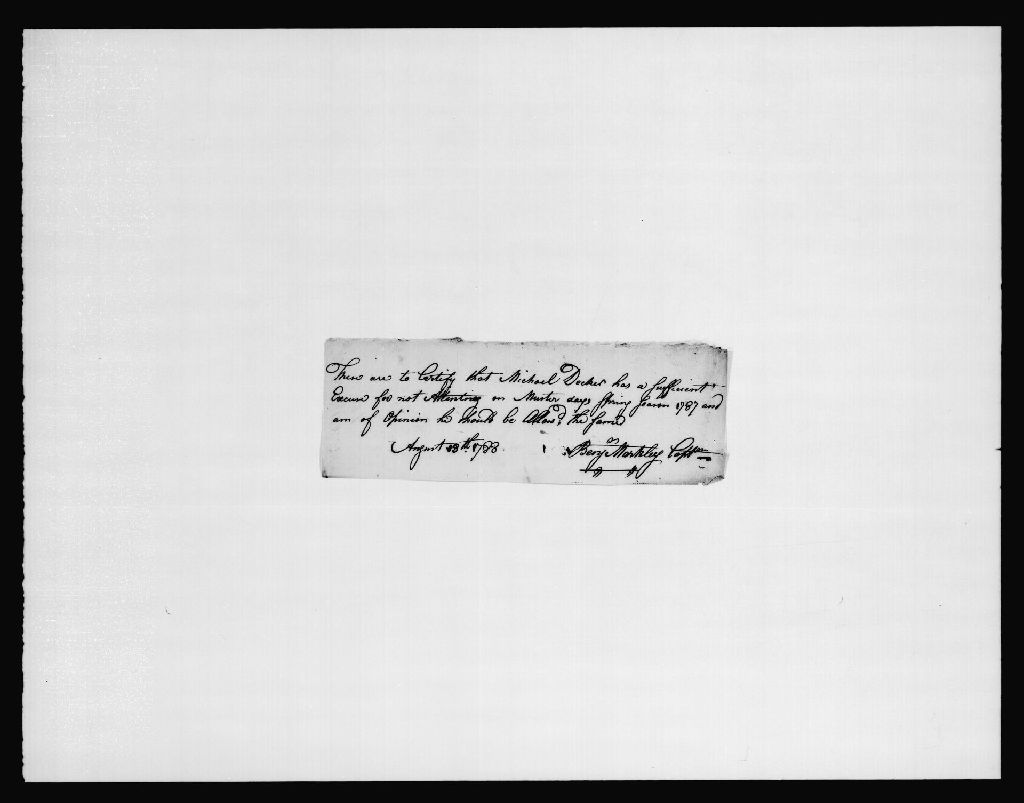 These are to Certify that Michael Decker has a Sufficient
Excuse for not Attending on Muster days Spring season 1787 and
am of Opinion he should be Allow'd the same
August 13th 1788
Benjn Markley Captn